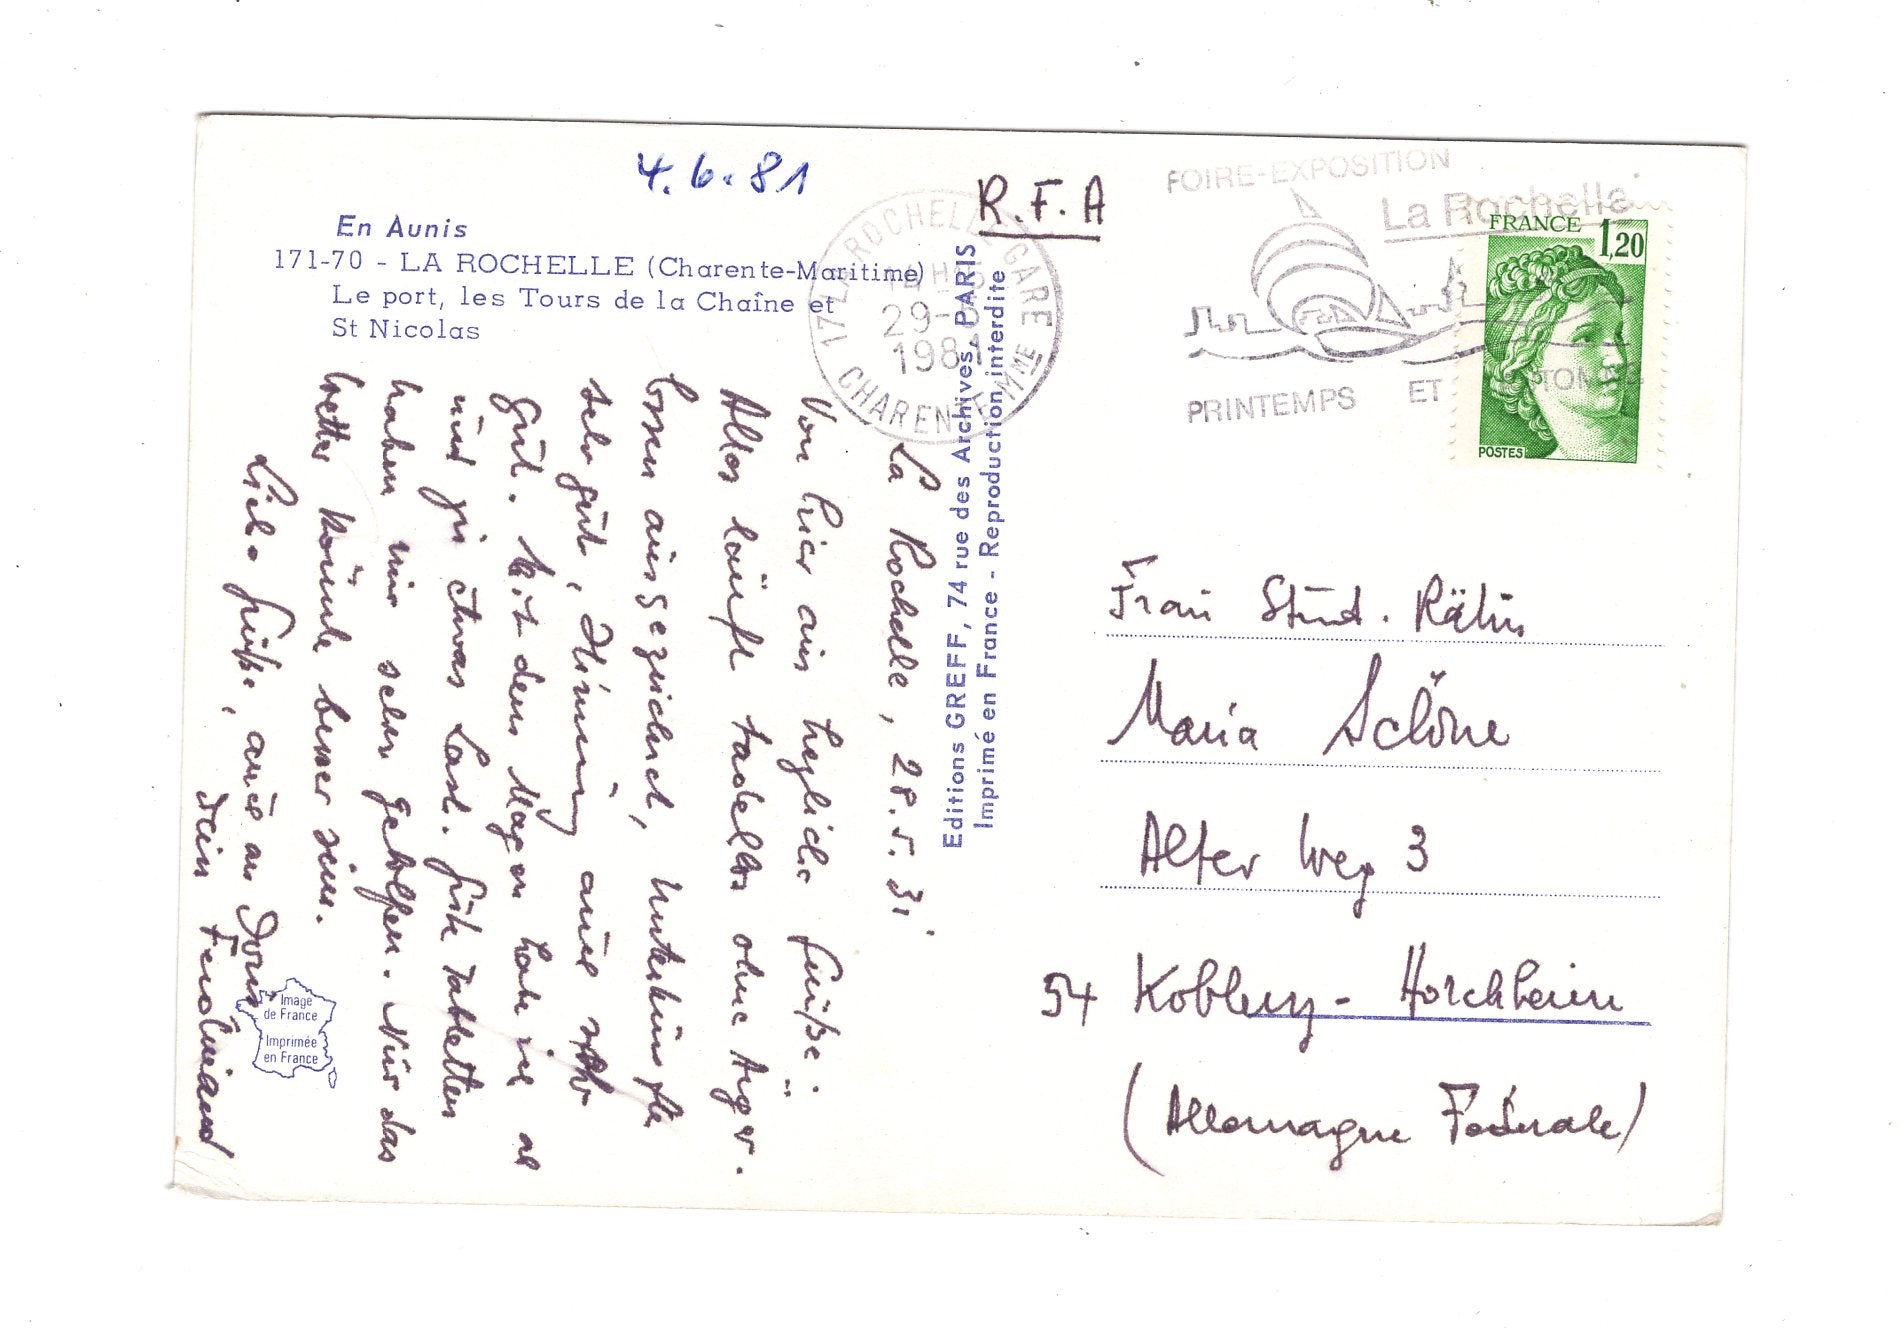 4.6.81
En Aunis
171-70 - LA ROCHELLE (Charente-Maritime)
Le port, les Tours de la Chaîne et
St Nicolas
La Rochelle, 28.5.81
Von hier aus herzliche Grüße.
Alles läuft tadellos ohne Ärger.
Essen ausgezeichnet, Unterkünfte
sehr gut, Stimmung auch sehr
gut. Mit dem Magen habe ich ab
und zu etwas Last. Hüls Tabletten
haben mir sehr geholfen. Nur das
Wetter könnte besser sein.
Liebe Grüße, auch an Doris
Dein Ferdinand
Image
de France
Imprimée
en France
Editions GREFF, 74 rue des Archives, PARIS
Imprimé en France - Reproduction interdite
17 LA ROCHELLE GARE
29-
1981
CHARENTE MME
R.F.A
FOIRE-EXPOSITION
La Rochelle
PRINTEMPS ET
FRANCE 1,20
POSTES
Frau Stud. Rätin
Maria Schöne
Alter Weg 3
54 Koblenz - Horchheim
(Allemagne Féderale)